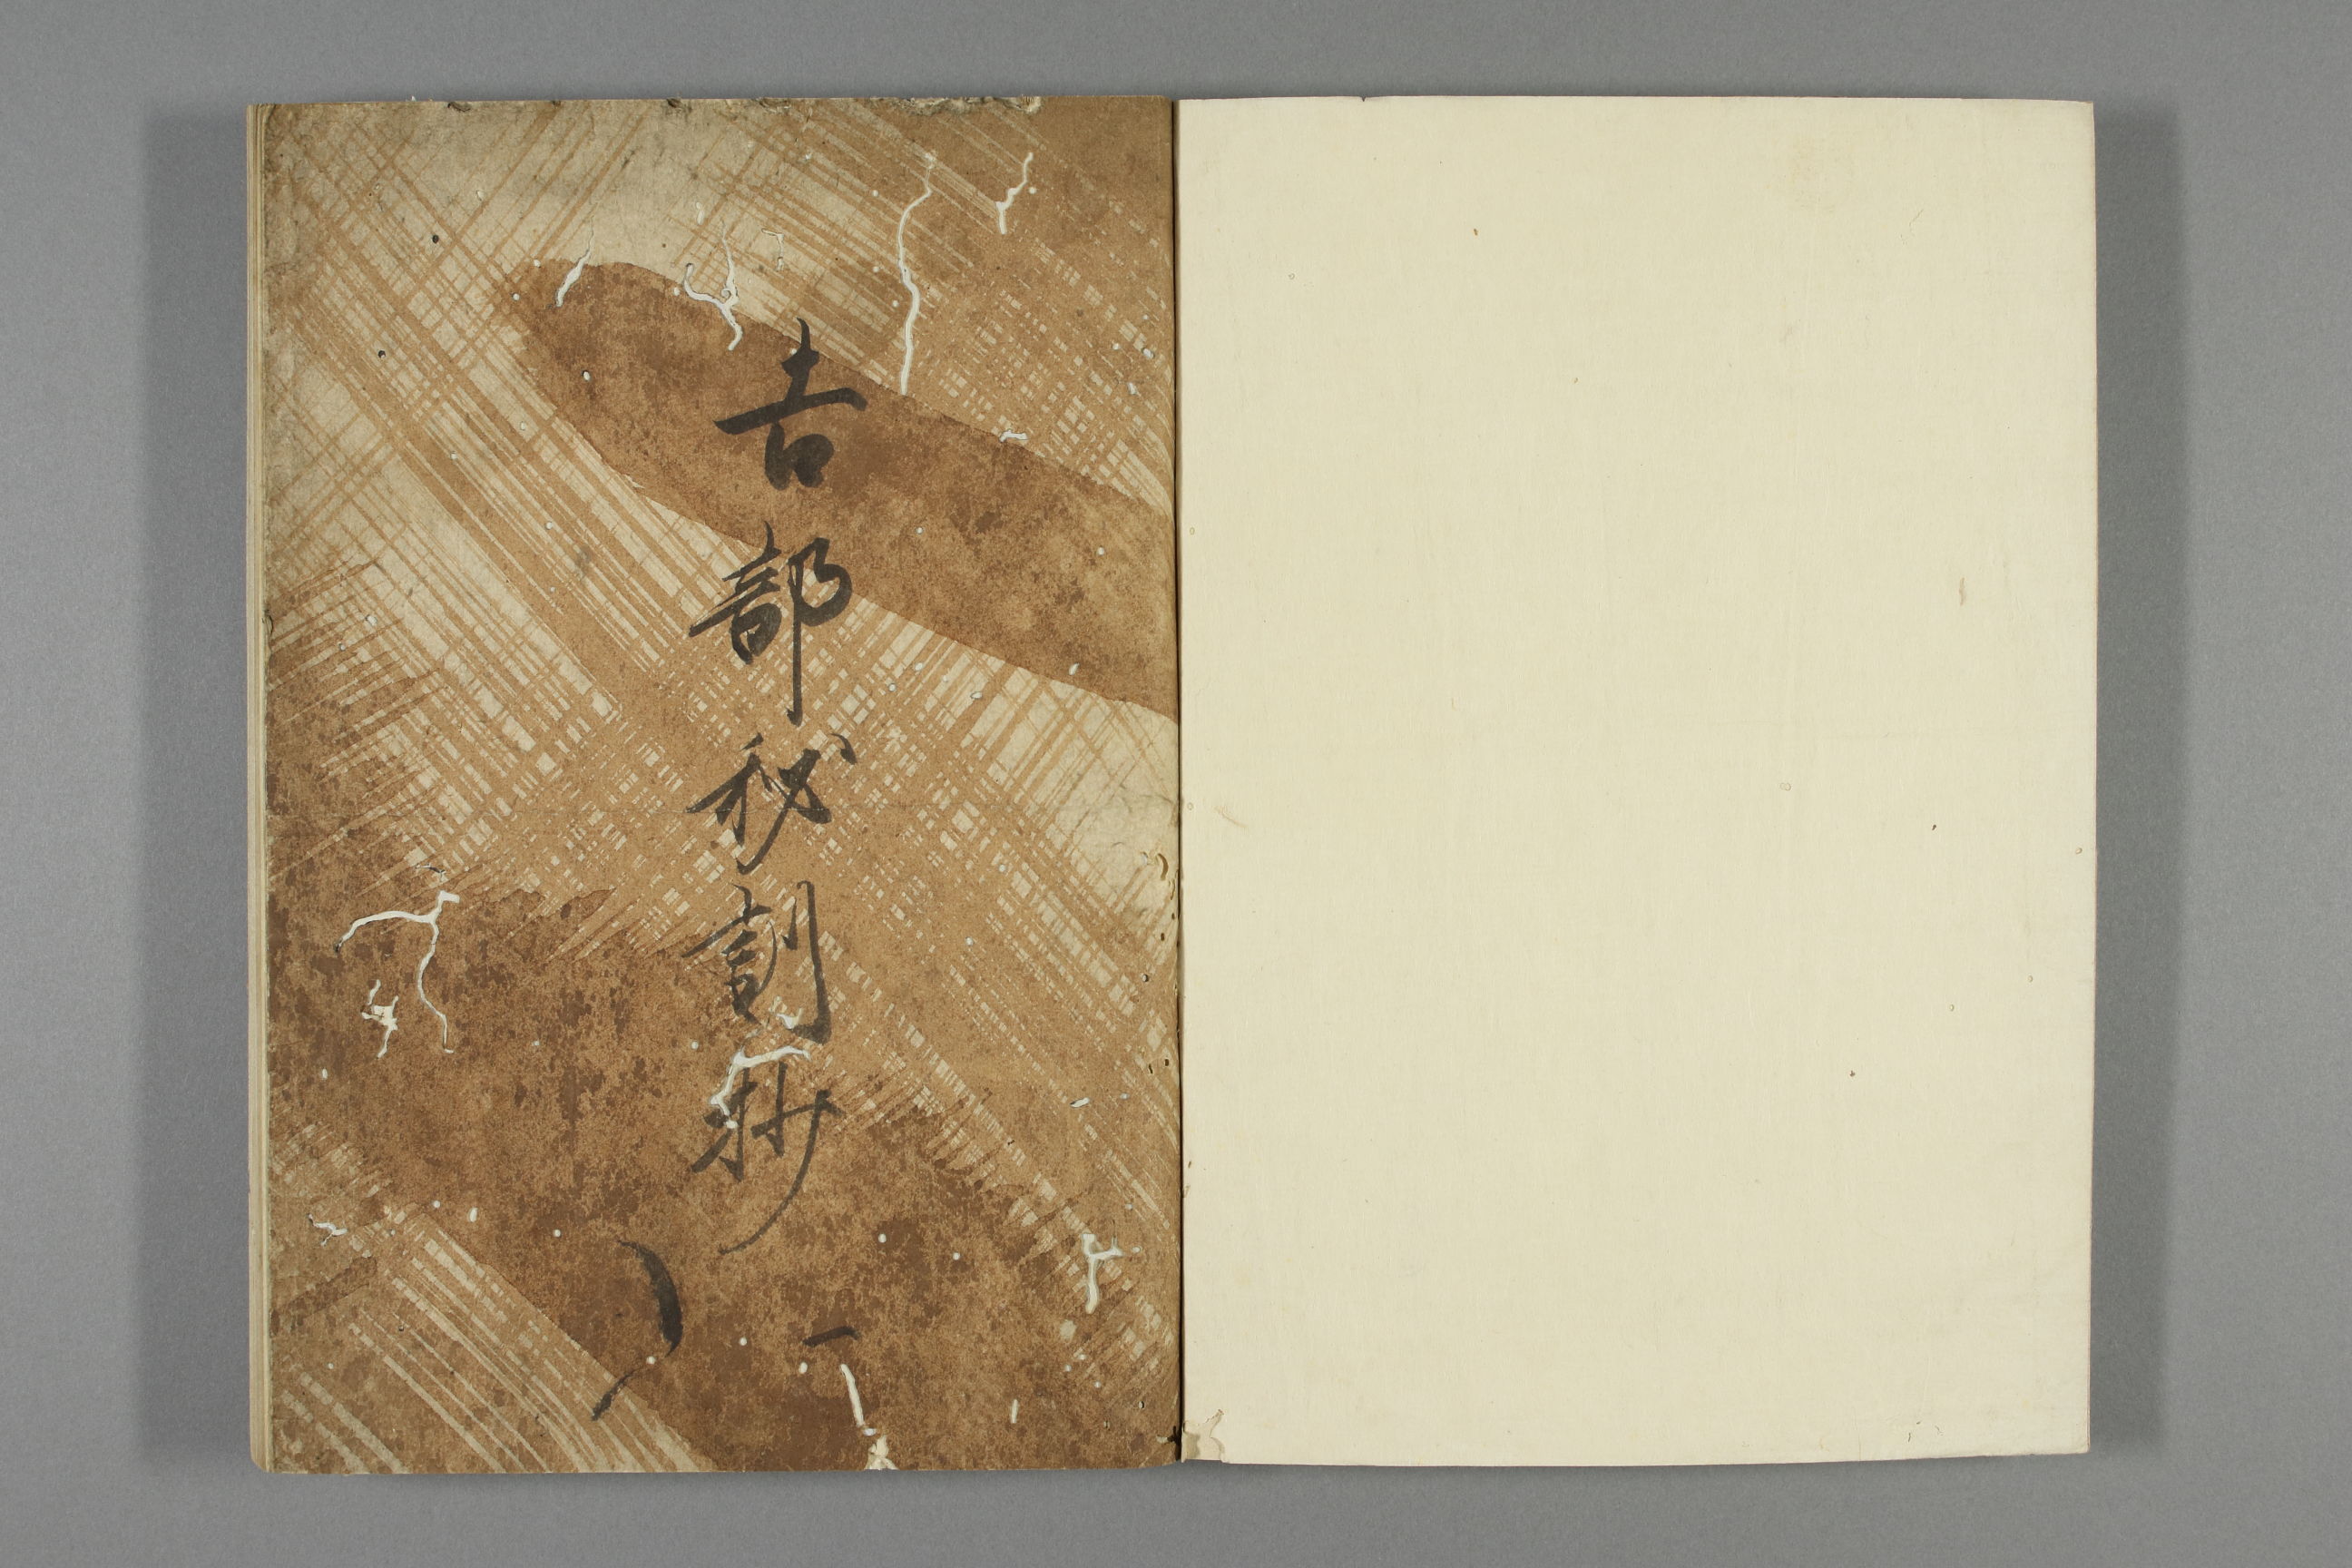 吉部秘訓抄
一